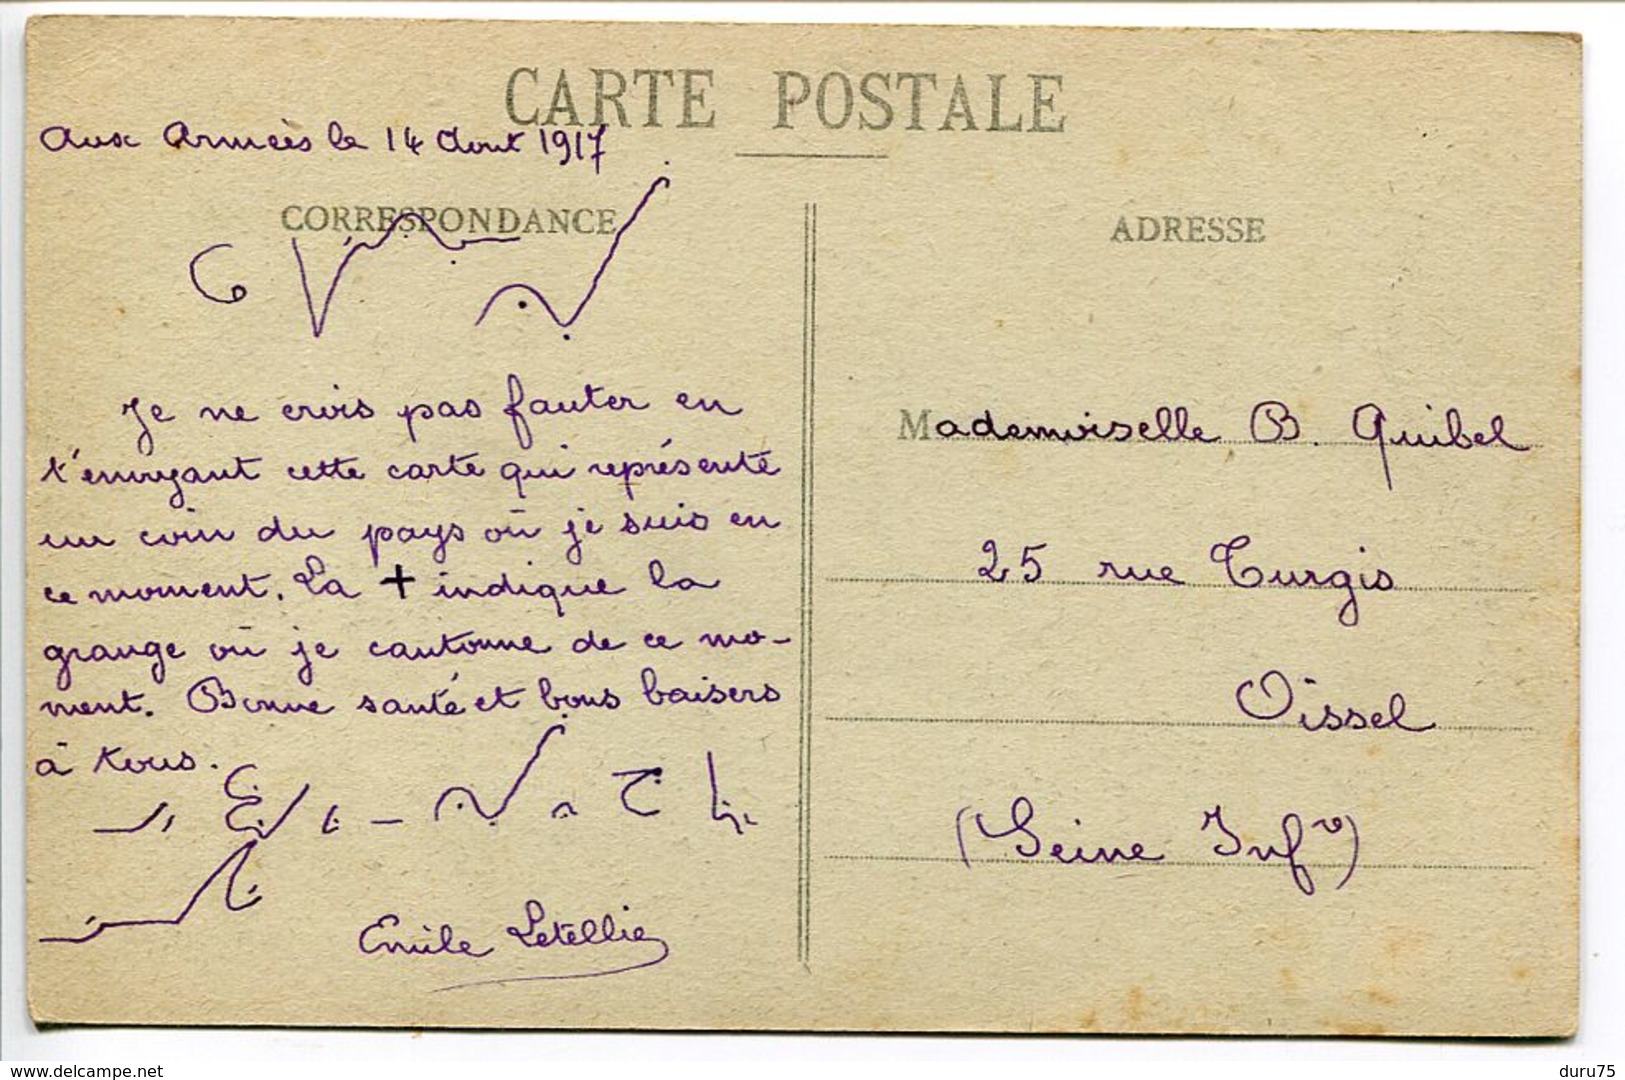 CARTE POSTALE
Aux Armées le 14 Aout 1917
CORRESPONDANCE
Je ne crois pas fauter en
t'envoyant cette carte qui représente
un coin du pays où je suis en
ce moment. La + indique la
grange où je cantonne de ce mo-
ment. Bonne santé et bons baisers
à tous.
Emile Letellier
ADRESSE
Mademoiselle B. Quibel
25 rue Turgis
Oissel
(Seine Infre)
delcampe.net
duru75